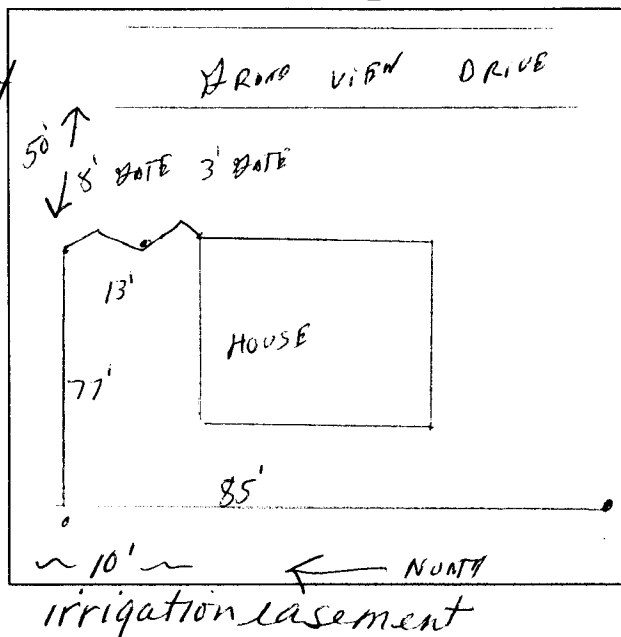 GRAND VIEW DRIVE
50'
8' GATE 3' GATE
13'
HOUSE
77'
85'
~ 10' ~ ← NORTH
irrigation easement